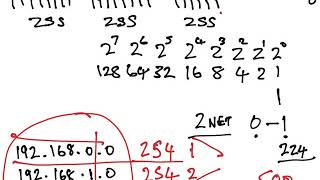 255 255 255
2⁷ 2⁶ 2⁵ 2⁴ 2³ 2² 2¹ 2⁰
128 64 32 16 8 4 2 1
1
2 NET 0-1
192.168.0.0 254 1 224
192.168.1.0 254 2